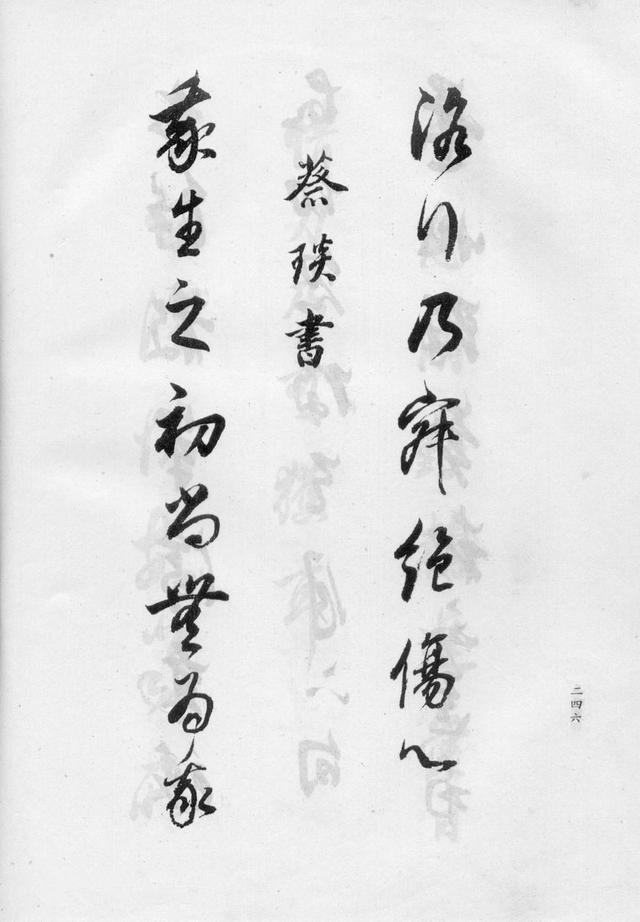 洛行乃絕傷心
蔡琰書
我生之初尚無為我
二四六